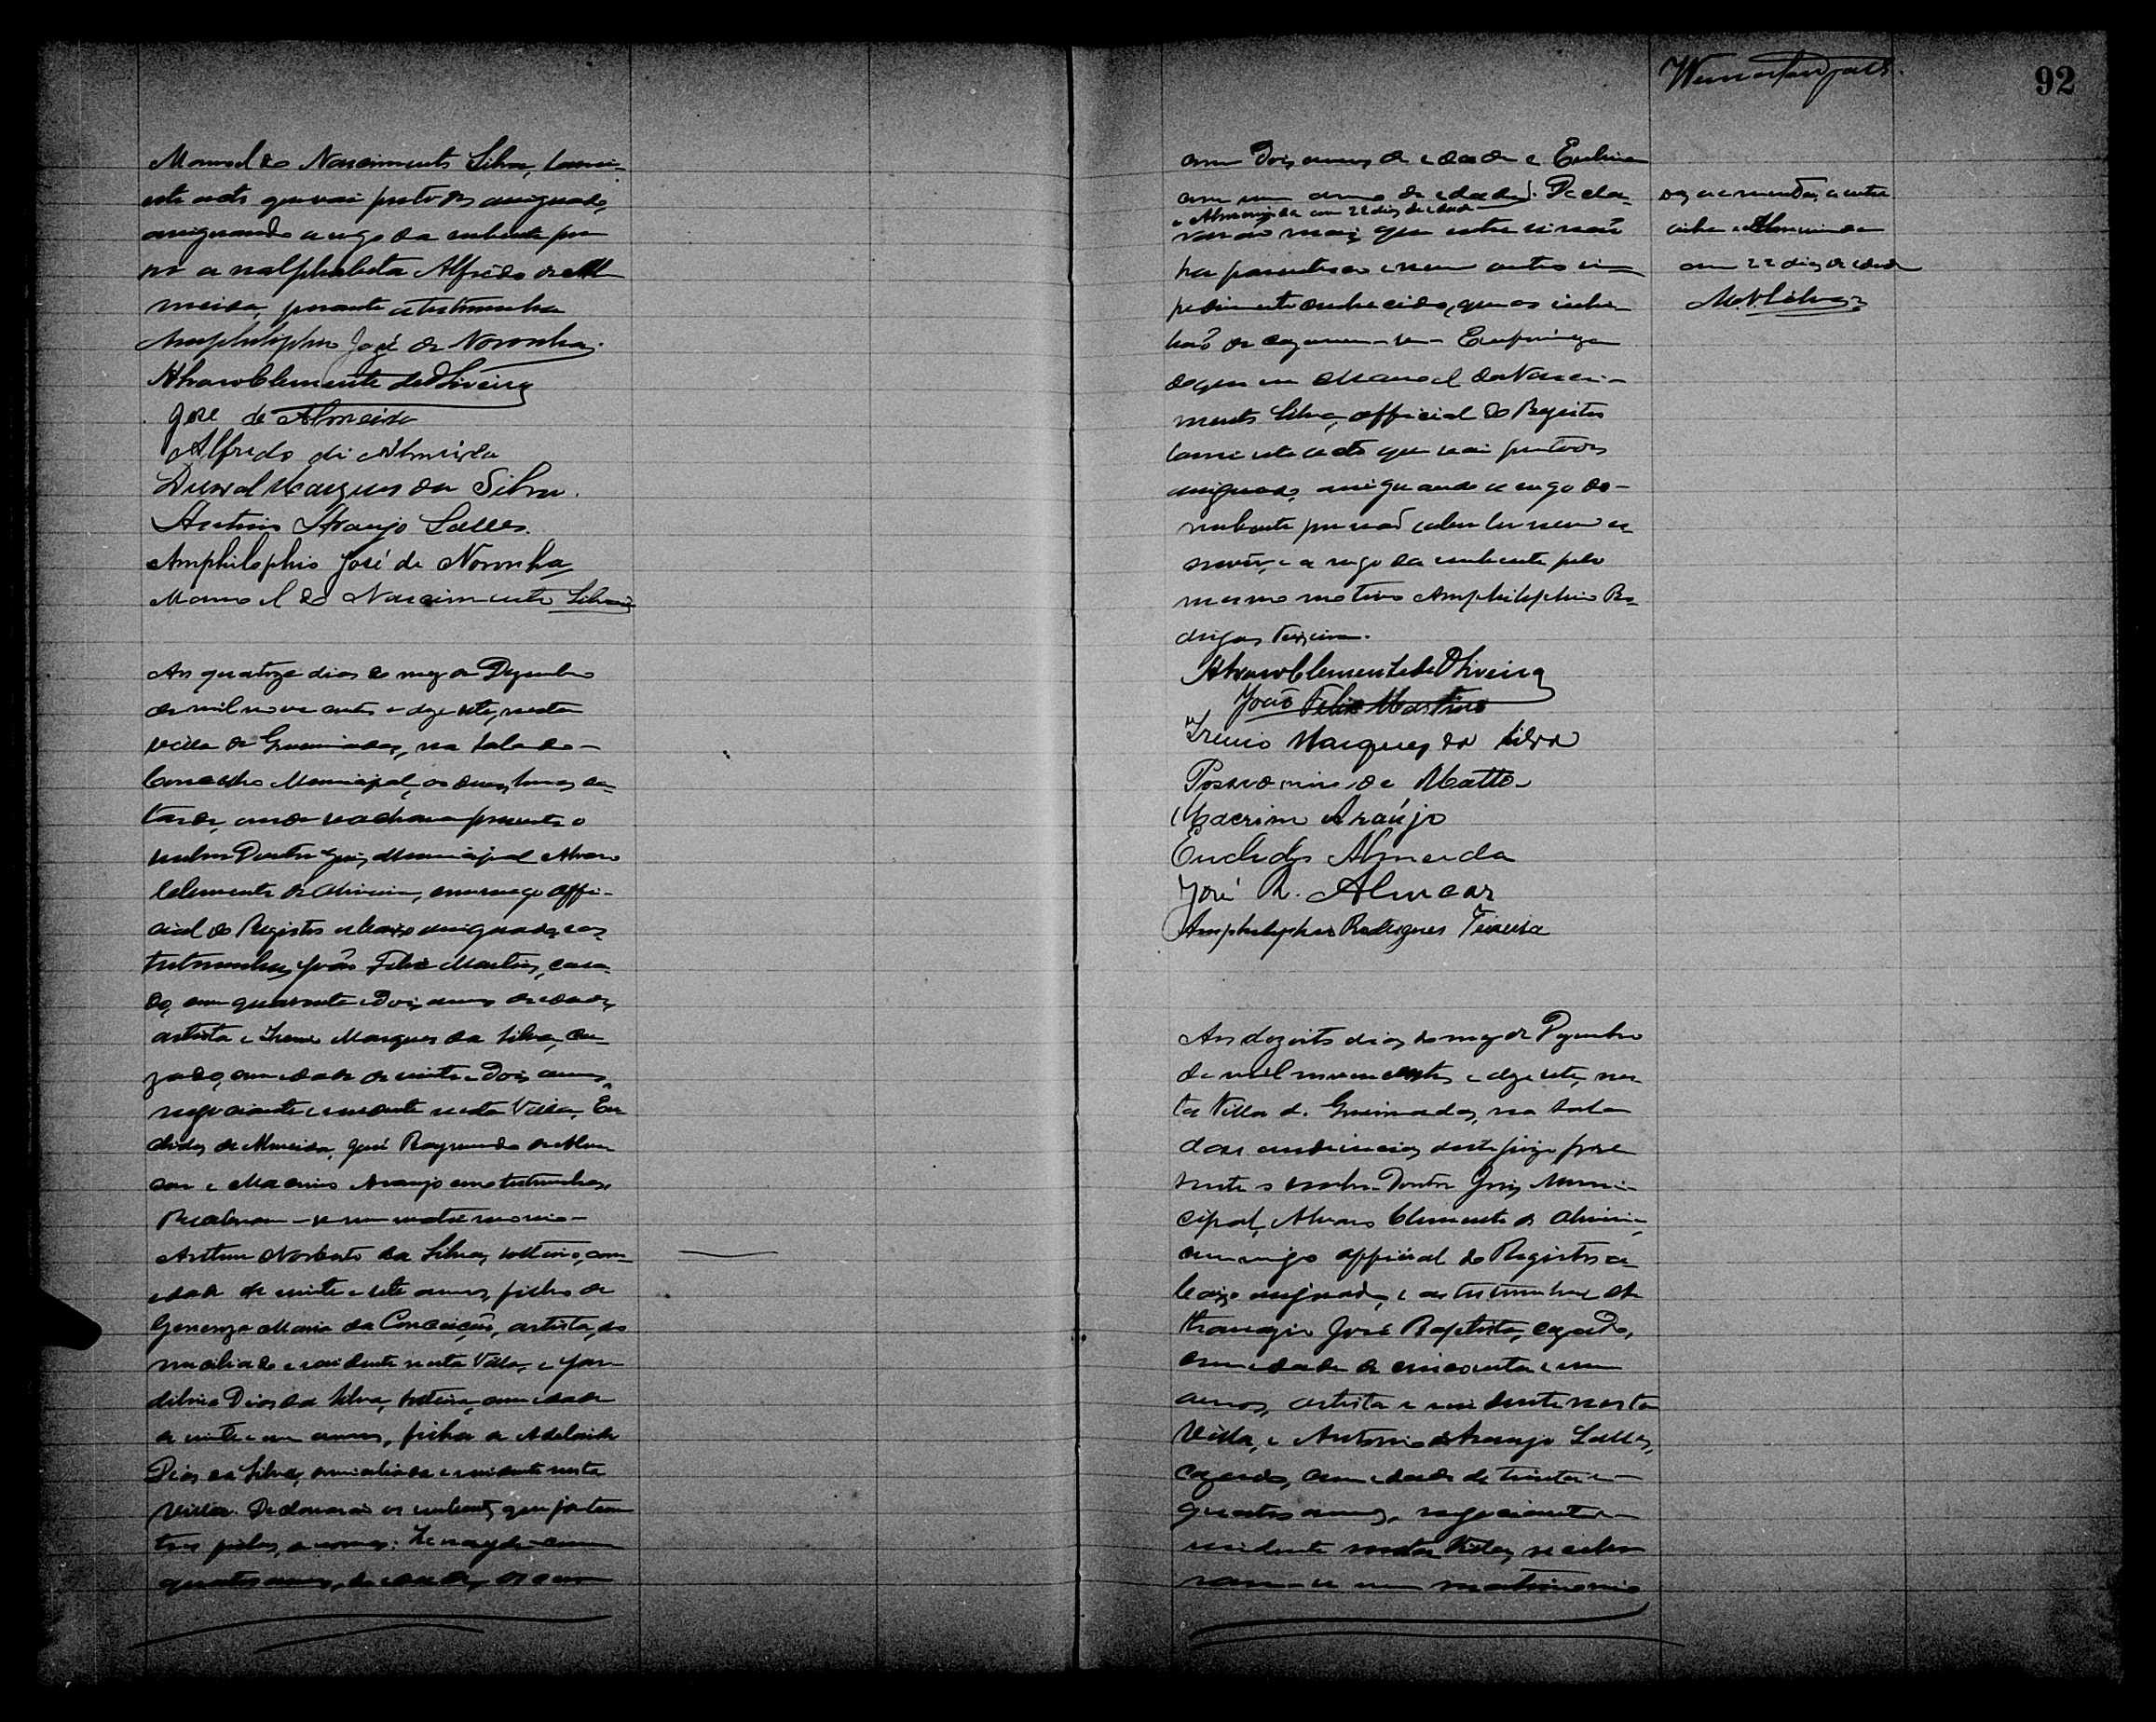 Manoel do Nascimento Silva, lavrei
este acto que vai por todos assignado,
assignando a rogo da nubente por
ser analphabeta Alfredo de Al
meida, perante as testemunhas
Amphilophio José de Noronha.
Alvaro Clemente de Oliveira
José de Almeida
Alfredo de Almeida
Durval Marques da Silva.
Antonio Araujo Salles.
Amphilophio José de Noronha
Manoel do Nascimento Silva
Aos quatorze dias do mez de Dezembro
de mil nove centos e dezesete, nesta
Villa de Guimarães, na Sala do
Conselho Municipal, as duas horas da
tarde, onde se achava presente o
senhor Doutor Juiz Municipal Alvaro
Clemente de Oliveira, commigo offi-
cial do Registro abaixo assignado, e as
testemunhas João Felix Martins, casa-
do, com quarenta e dois annos de idade,
artista e Irenio Marques da Silva, ca-
zado, com idade de vinte e dois annos,
negociante e residente nesta Villa, Eu
clides de Almeida, José Raymundo de Alen
car e Macrino Araujo como testemunhas,
Receberam-se em matrimonio
Arthur Norberto da Silva, solteiro, com
idade de vinte e sete annos, filho de
Generoza Maria da Conceição, artista, do
miciliado e residente nesta Villa, e Jor
dilina Dias da Silva, solteira, com idade
de vinte e um annos, filha de Adelaide
Dias da Silva, domiciliada e residente nesta
Villa. Declararão os nubentes que já tem
tres filhos, de nomes:
quatro annos de idade,
92
com dois annos de idade e
com um anno de idade. Decla-
e Almerinda com 22 dias de idade
rarão mais que entre si não
ha parentesco e nem outro im
pedimento conhecido, que os inhi
bão de cazarem-se. Em firmeza
do que eu Manoel do Nasci-
mento Silva, official do Registro
lavrei este acto que vai por todos
assignado, assignando a rogo do
nubente por não saber ler nem es-
crever, e a rogo da nubente pelo
mesmo motivo Amphilophio Ro-
drigues Teixeira.
Alvaro Clemente de Oliveira
João Felix Martins
Irenio Marques da Silva
de Mattos
Macrino Araújo
Euclides Almeida
José R. Alencar
Amphilophio Rodrigues Teixeira
entre
linha e Almerinda
com 22 dias de idade
M. N. Silva
Aos dezoito dias do mez de Dezembro
de mil nove centos e dezesete, nes
ta Villa de Guimarães, na Sala
das audiencias deste juizo pre
sente o senhor Doutor Juiz Muni-
cipal, Alvaro Clemente de Oliveira,
commigo official do Registro a-
baixo assignado, e as testemunhas
José Baptista, cazado,
com idade de cincoenta e um
annos, artista e residente nesta
Villa, e Antonio de Araujo Salles,
cazado, com idade de trinta e
quatro annos, negociante e
residente nesta Villa, recebe
ram-se em matrimonio